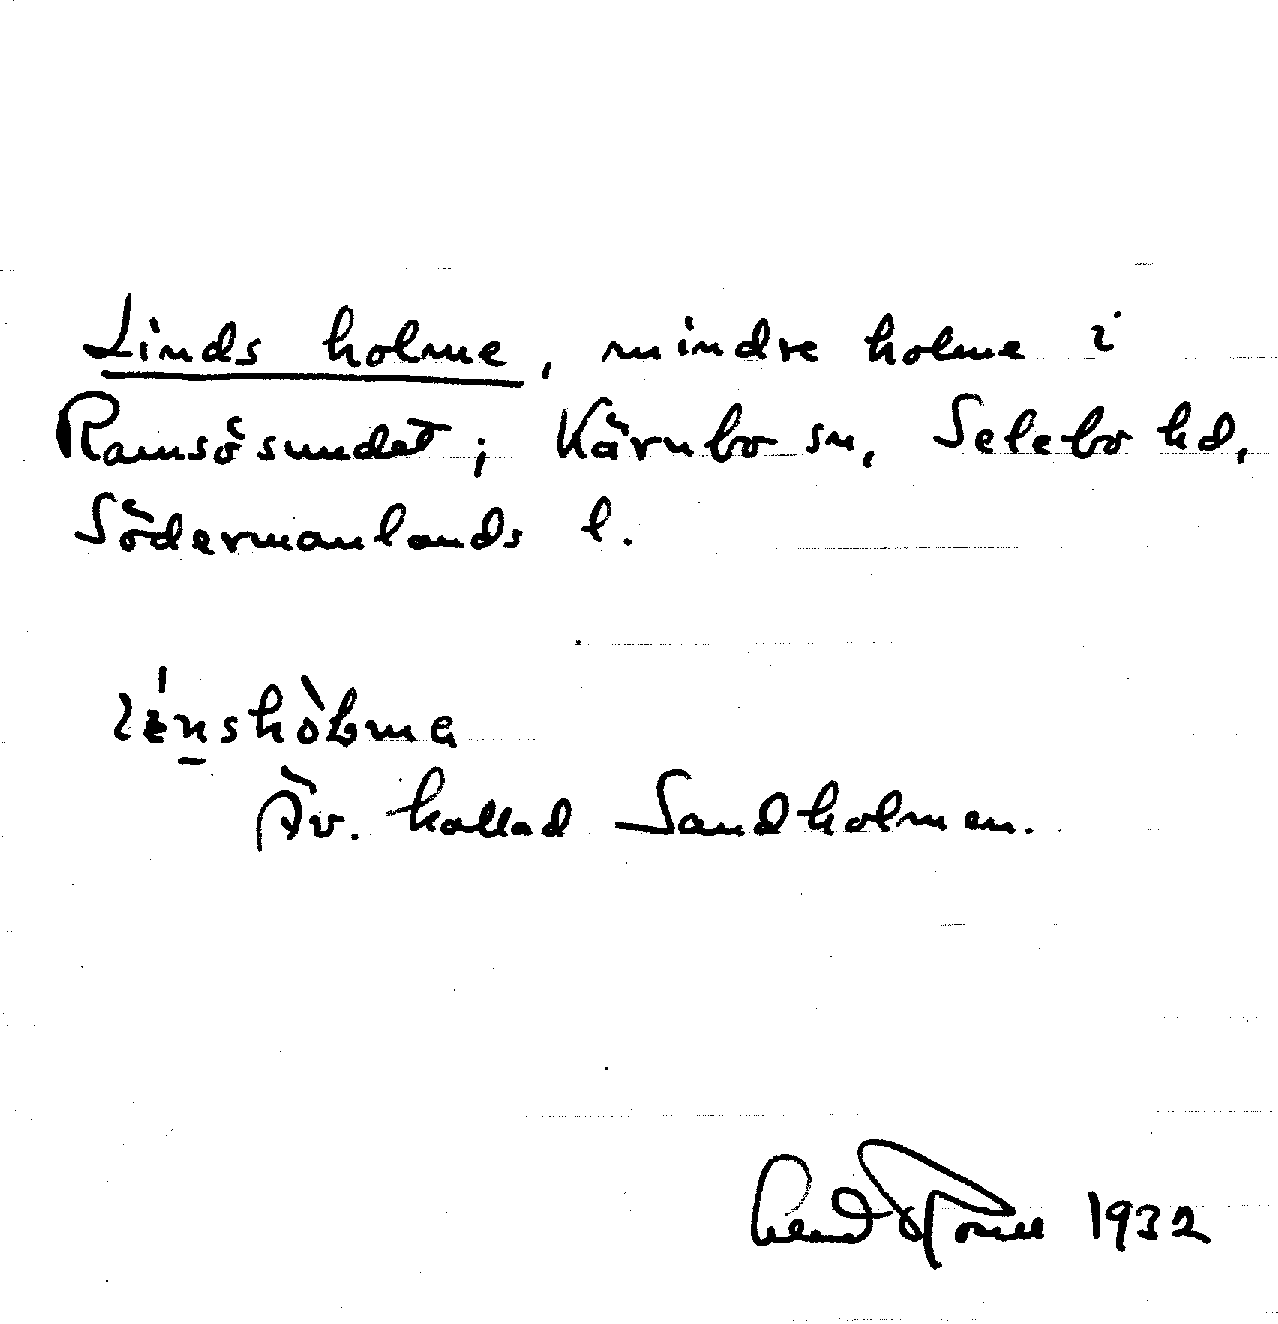 Linds holme, mindre holme i
Ramsösundet; Kärnbo sn, Selebo hd,
Södermanlands l.
Äv. kallad Sandholmen.
1932